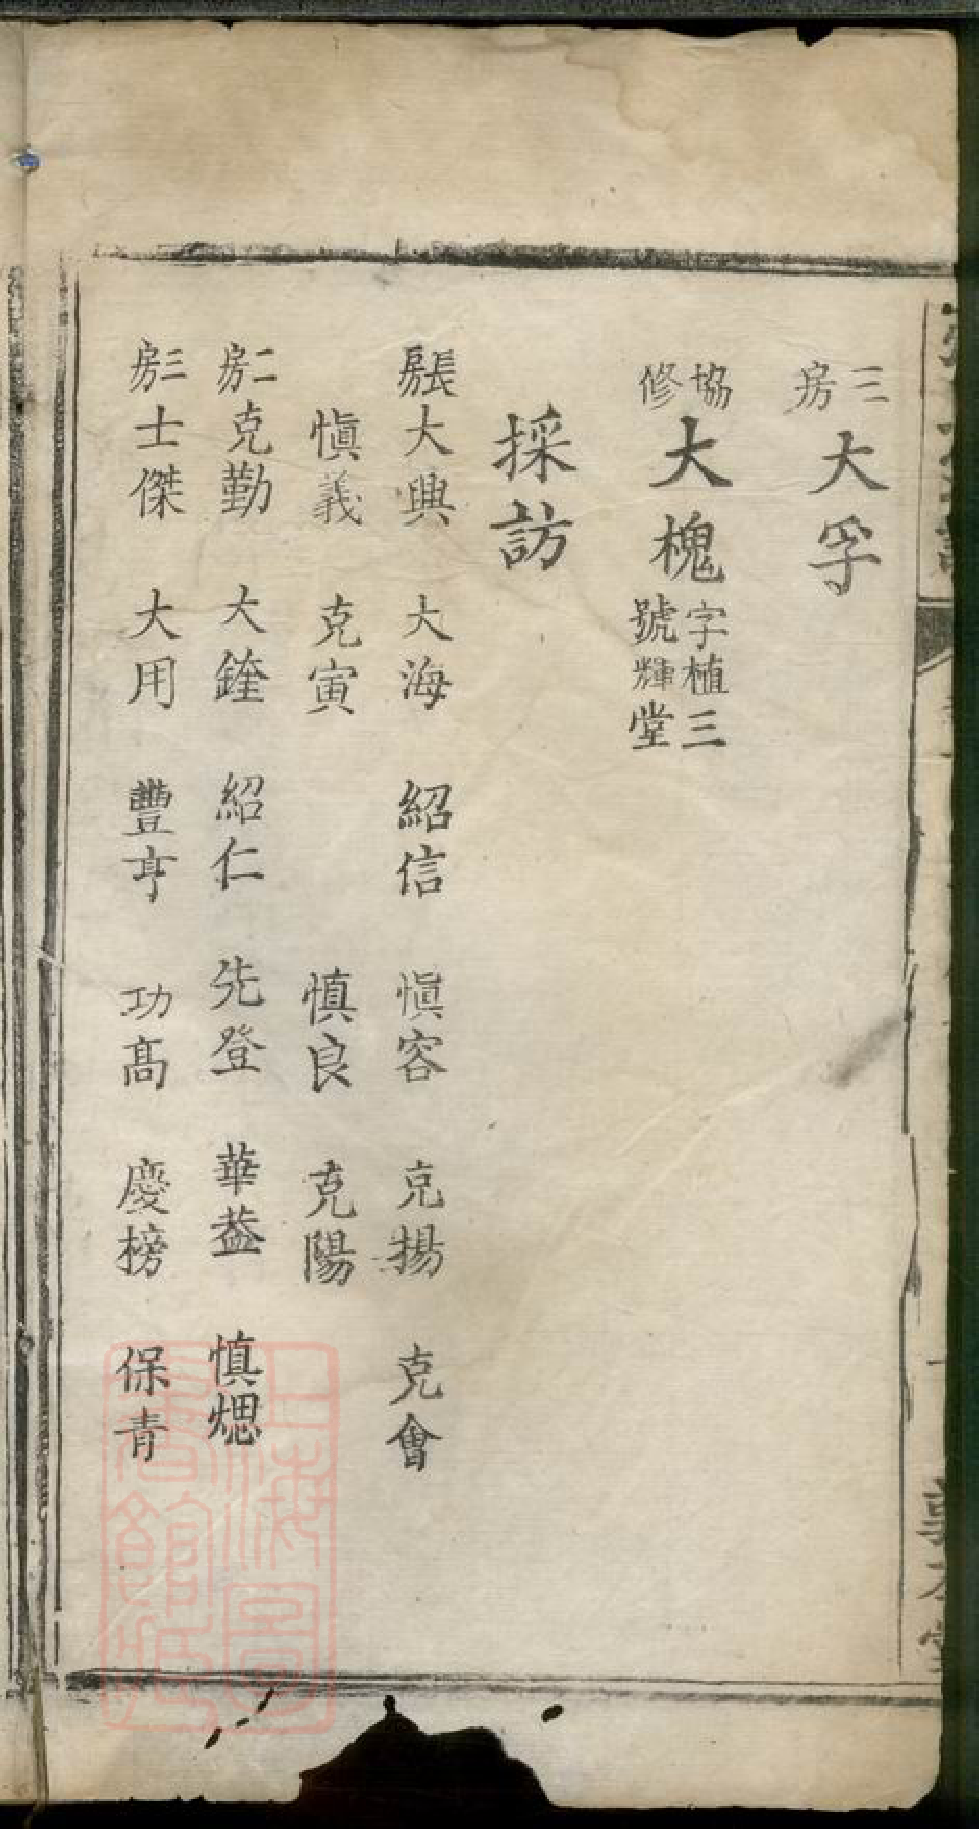 三房大孚
協修大槐字植三號輝堂
採訪
長房大興 大海 紹信 慎容 克揚 克會
慎義 克寅 慎良 克陽
二房克勤 大鏳 紹仁 先登 華葢 慎煾
三房士傑 大用 豐亨 功高 慶榜 保青
上海圖書館藏